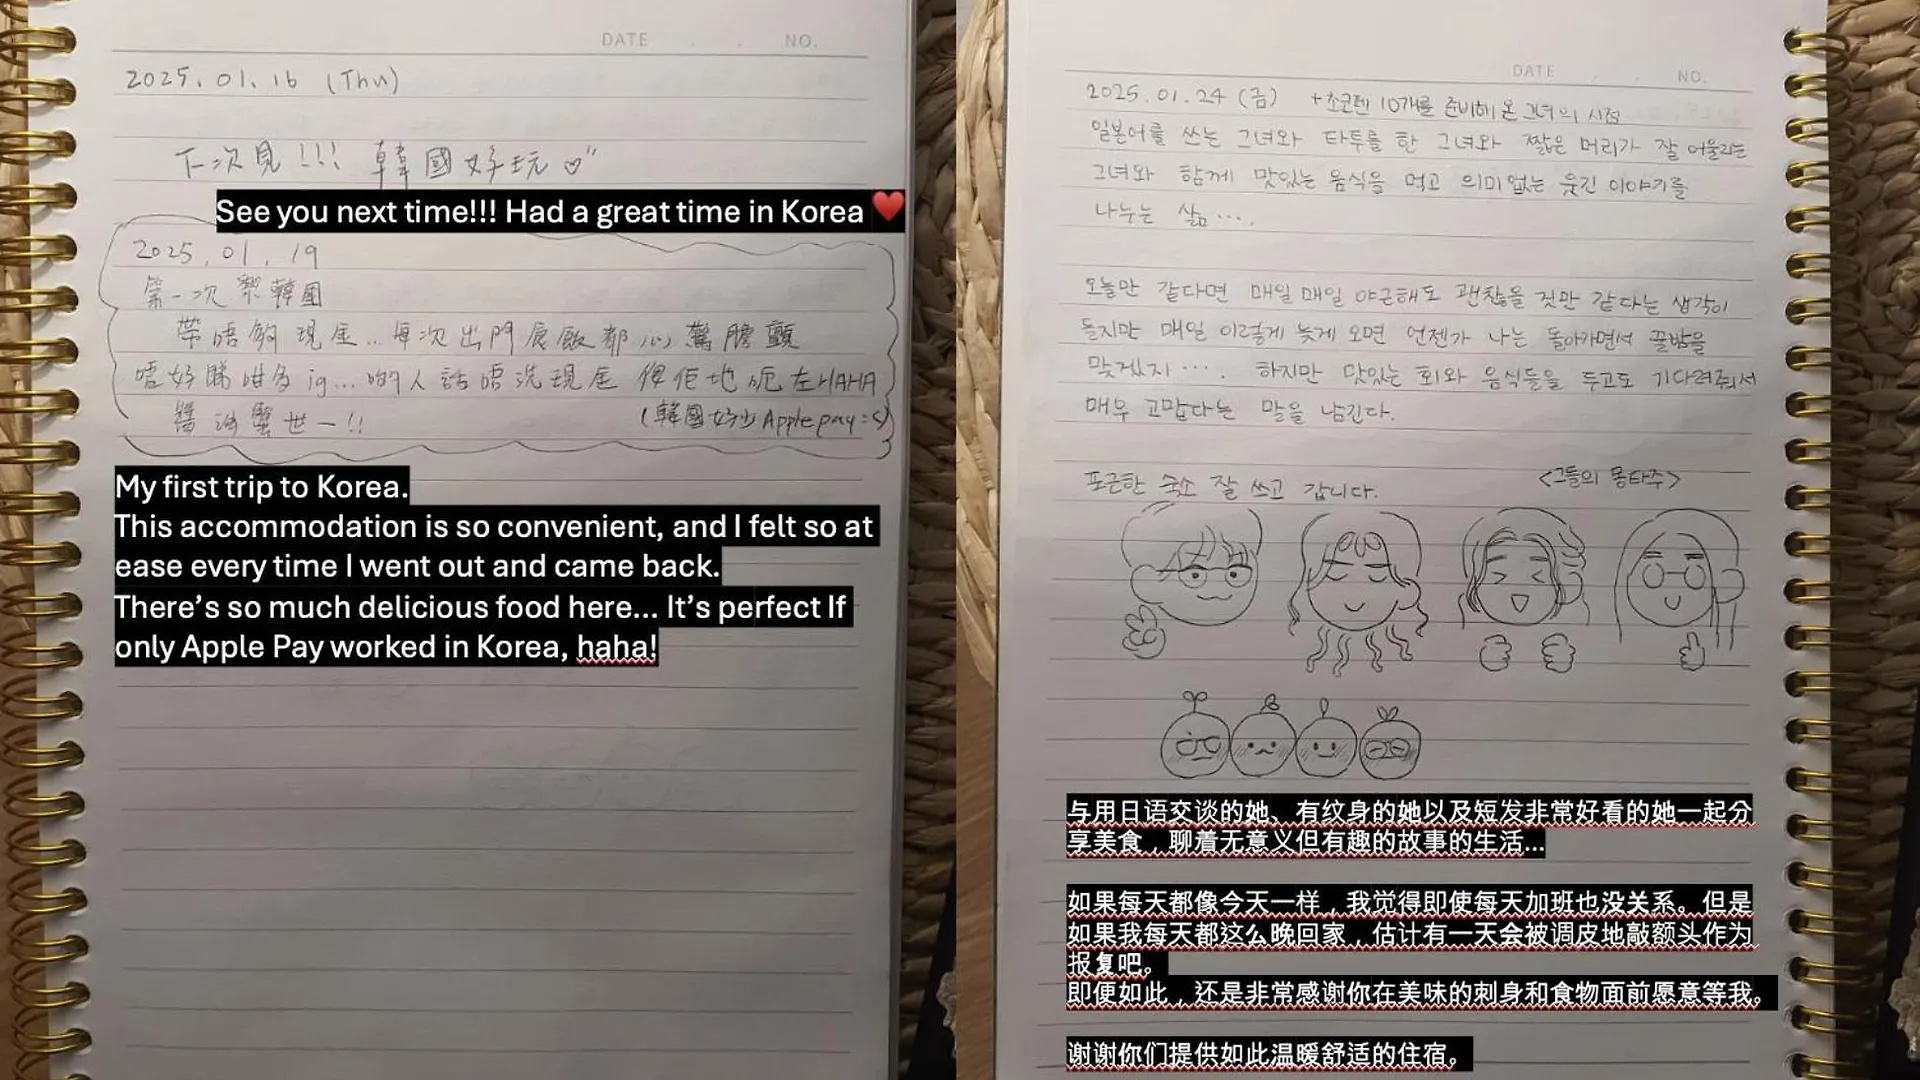 DATE . . NO.
2025. 01. 16 (Thu)
下次見!!! 韓國好玩♡
See you next time!!! Had a great time in Korea ❤️
2025. 01. 19
第一次黎韓國
帶唔夠現金... 每次出門食飯都心驚膽顫
唔好睇咁多 ig... 啲人話唔洗現金 俾佢地呃左 HAHA
醬油蟹世一!! (韓國好少 Apple pay :<)
My first trip to Korea.
This accommodation is so convenient, and I felt so at
ease every time I went out and came back.
There's so much delicious food here... It's perfect If
only Apple Pay worked in Korea, haha!
DATE . . NO.
2025. 01. 24 (금) + 초코렛 10개를 준비해 온 그녀의 시점
일본어를 쓰는 그녀와 타투를 한 그녀와 짧은 머리가 잘 어울리는
그녀와 함께 맛있는 음식을 먹고 의미없는 웃긴 이야기를
나누는 삶....
오늘만 같다면 매일매일 야근해도 괜찮을 것만 같다는 생각이
들지만 매일 이렇게 늦게 오면 언젠가 나는 돌아가면서 꿀밤을
맞겠지.... 하지만 맛있는 회와 음식들을 두고도 기다려줘서
매우 고맙다는 말을 남긴다.
포근한 숙소 잘 쓰고 갑니다. <그들의 몽타주>
与用日语交谈的她、有纹身的她以及短发非常好看的她一起分
享美食，聊着无意义但有趣的故事的生活...
如果每天都像今天一样，我觉得即使每天加班也没关系。但是
如果我每天都这么晚回家，估计有一天会被调皮地敲额头作为
报复吧。
即便如此，还是非常感谢你在美味的刺身和食物面前愿意等我。
谢谢你们提供如此温暖舒适的住宿。